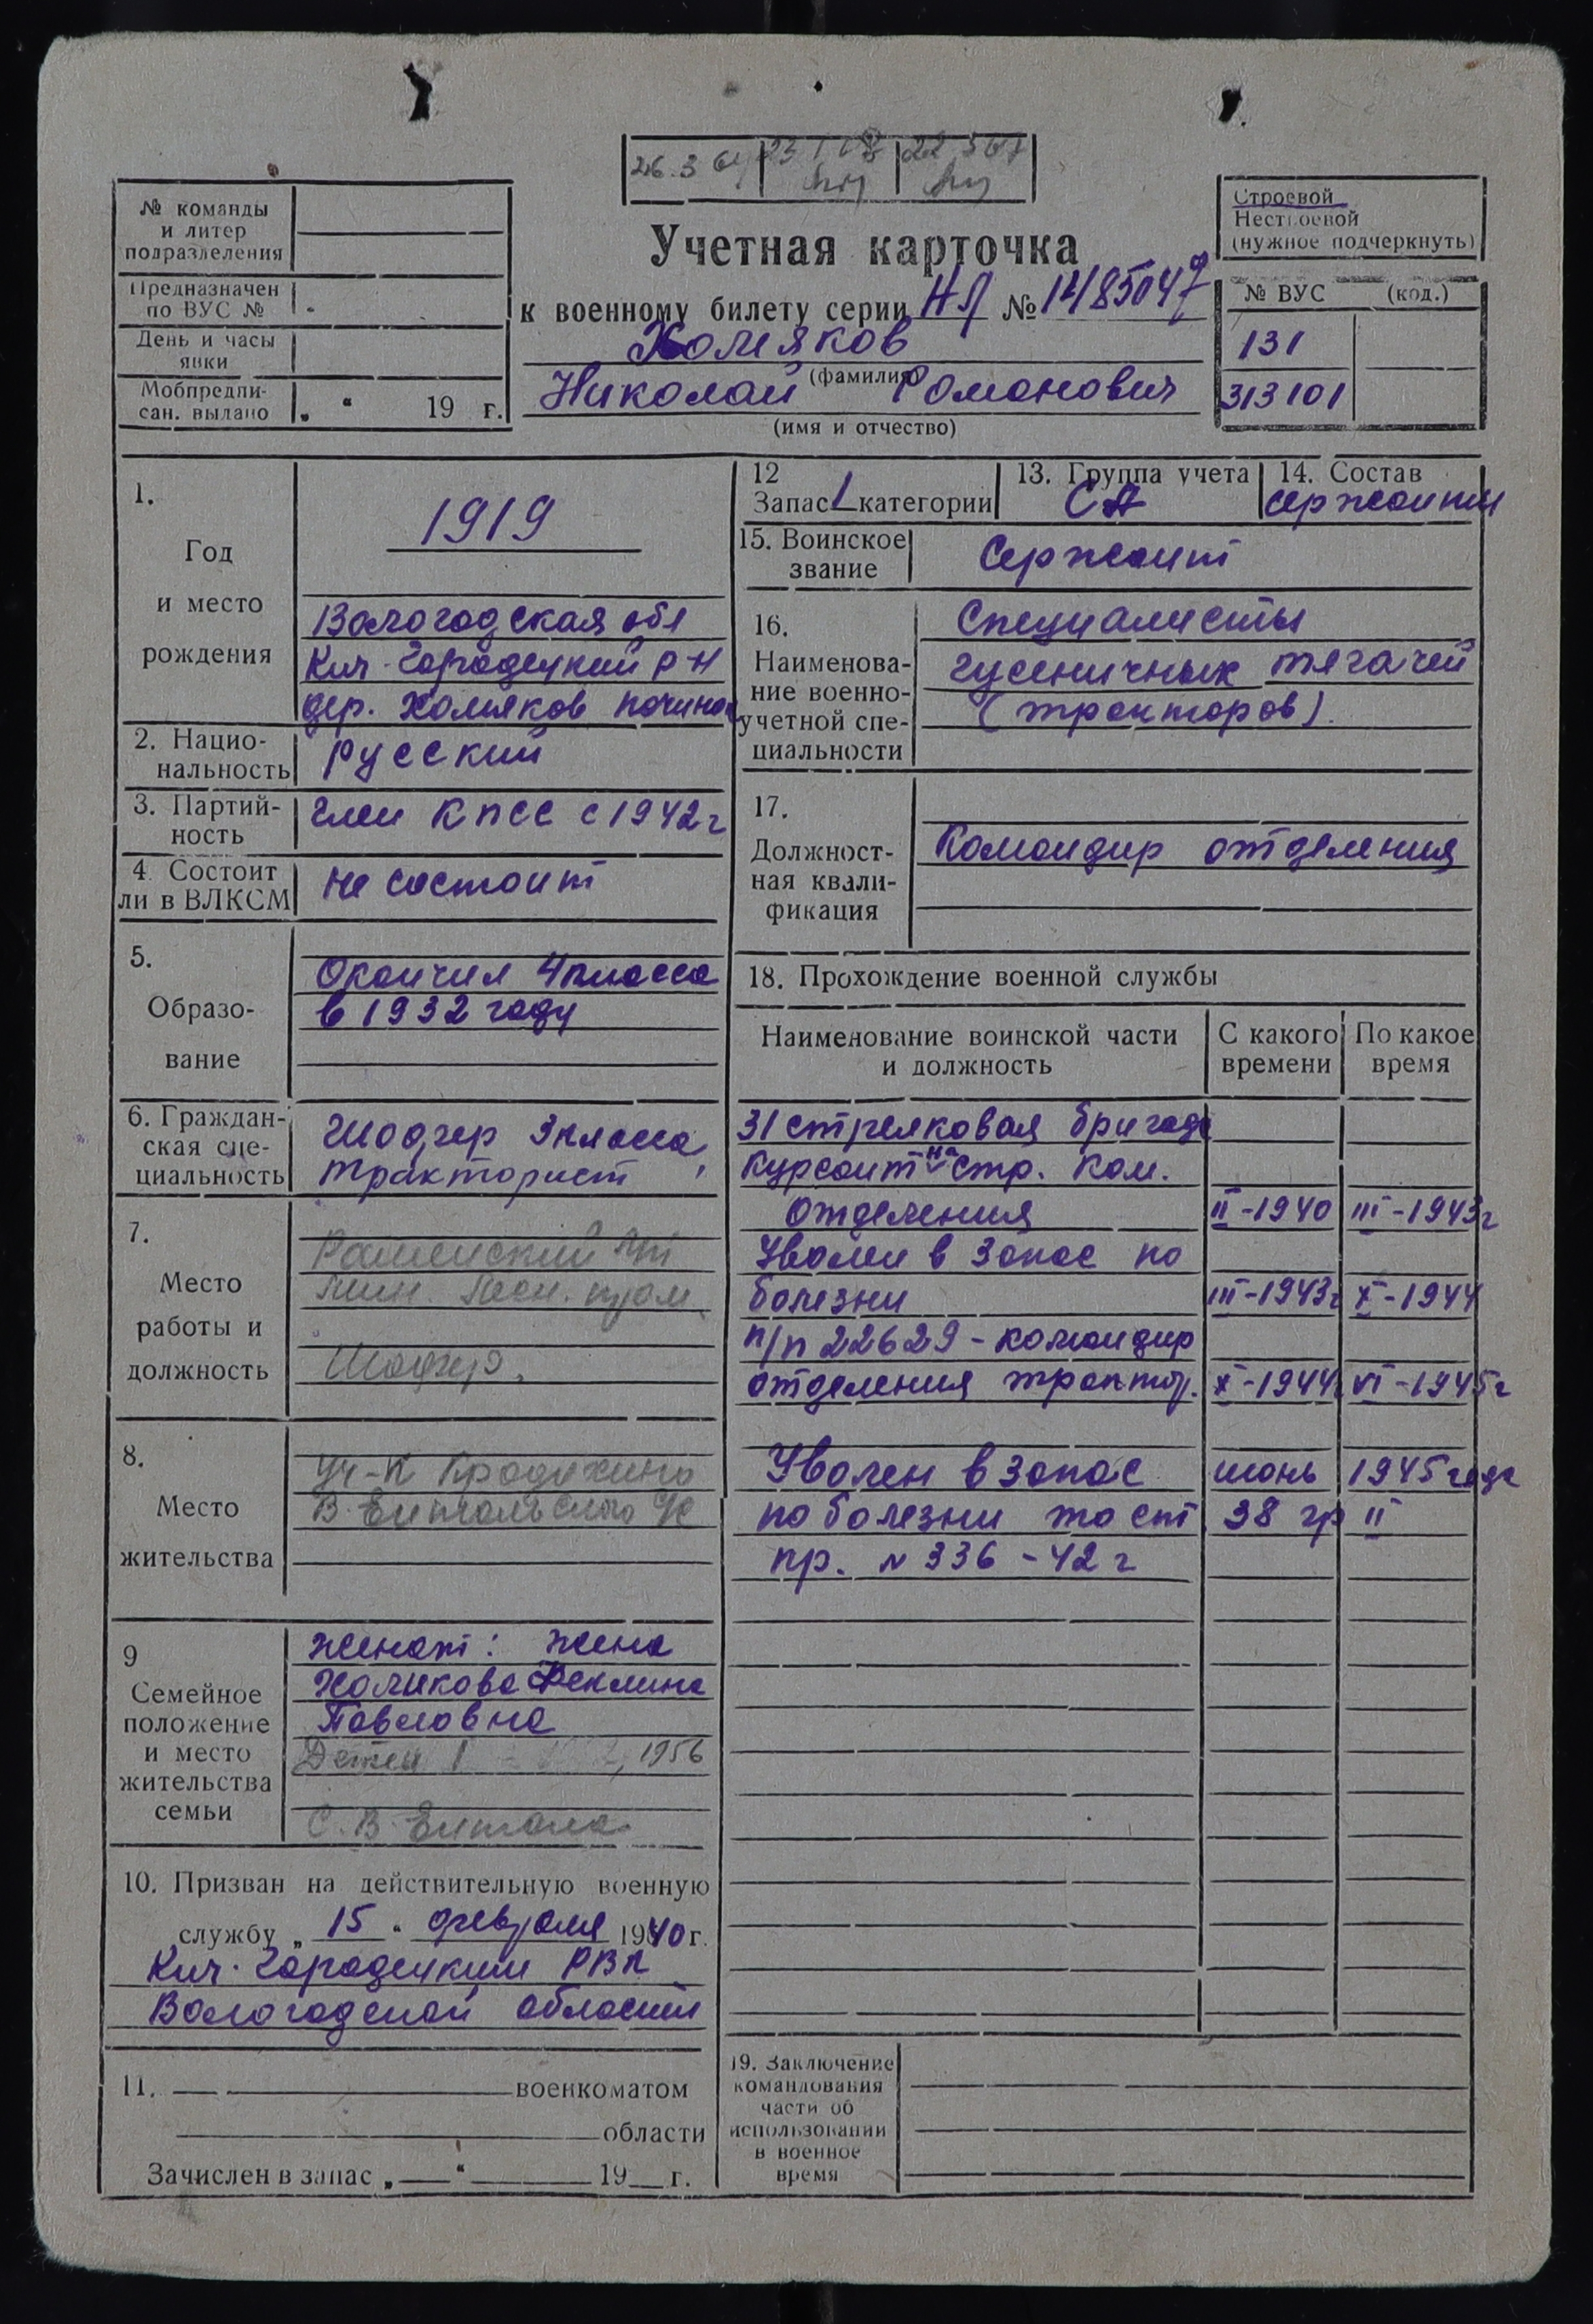 26.3 64
23 1
22 5 67
№ команды
и литер
подразделения
Предназначен
по ВУС №
День и часы
явки
Мобпредпи-
сан. выдано „ “ 19 г.
Учетная карточка
к военному билету серии НЯ №
Холмяков
(фамилия)
Николай Романович
(имя и отчество)
Строевой
Нестроевой
(нужное подчеркнуть)
№ ВУС (код.)
131
313101
1.
Год
и место
рождения
1919
Вологодская обл
Кич-Городецкий р-н
дер. Холмяков почино
2. Нацио-
нальность
русский
3. Партий-
ность
член КПСС с 1942 г
4. Состоит
ли в ВЛКСМ
не состоит
5.
Образо-
вание
Окончил 4 класса
в 1932 году
6. Граждан-
ская спе-
циальность
Шофер 3 класса,
тракторист
7.
Место
работы и
должность
Шофер.
8.
Место
жительства
Уч-к
В-Ентальского
9
Семейное
положение
и место
жительства
семьи
женат: жена
Холмкова Феклина
Павловна
Детей 1 1956
С. В-Ентала
10. Призван на действительную военную
службу „ 15 “ февраля 1940 г.
Кич-Городецким РВК
Вологодской области
11. военкоматом
области
Зачислен в запас „ “ 19 г.
12
Запас 1 категории
13. Группа учета
СА
14. Состав
сержанты
15. Воинское
звание
Сержант
16.
Наименова-
ние военно-
учетной спе-
циальности
Специалисты
гусеничных тягачей
(тракторов).
17.
Должност-
ная квали-
фикация
Командир отделения
18. Прохождение военной службы
Наименование воинской части
и должность
С какого
времени
По какое
время
31 стрелковая бригада
Курсант на стр. ком.
отделения II-1940 III-1943г
Уволен в запас по
болезни III-1943г X-1944
п/п 22629 - командир
отделения трактор. X-1944г VI-1945г
Уволен в запас июнь 1945 года
по болезни по ст 38 гр II
пр. № 336 - 42 г
19. Заключение
командования
части об
использовании
в военное
время